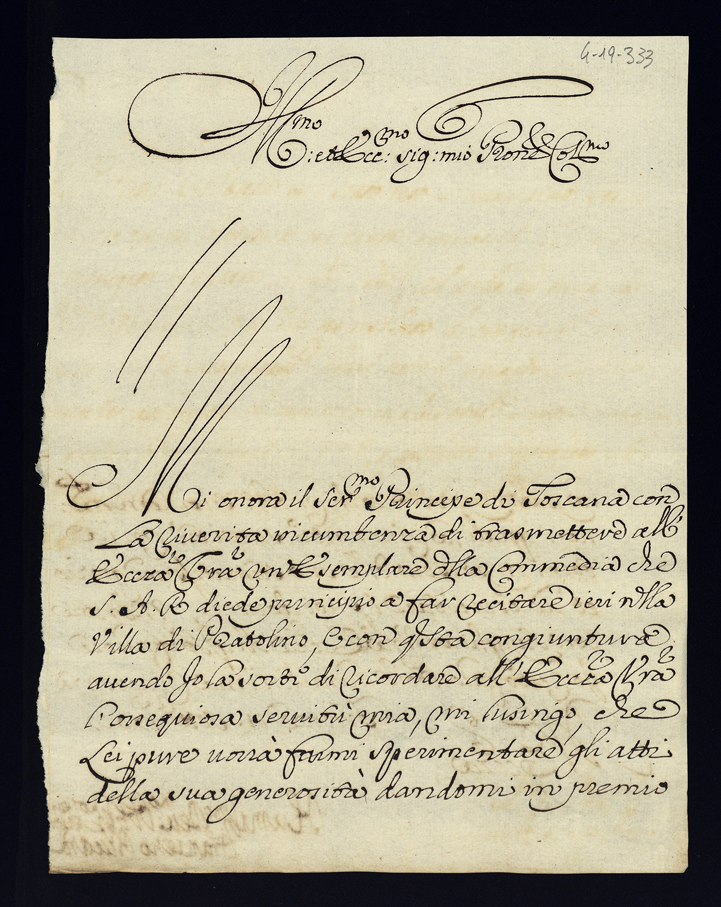 4-19-333
Ill.mo
et Ecc:mo sig: mio Pron Col.mo
Mi onora il Ser.mo Principe di Toscana con
La riverita incumbenza di trasmettere all'
Eccza Vra un Esemplare dlla Commedia che
S. A. R diede principio a far recitare ieri nlla
Villa di Pratolino, e con qsta congiuntura
avendo Jo la sorte di ricordare all' Eccza Vra
l'ossequiosa servitù mia, mi lusingo, che
Lei pure vorrà farmi sperimentare gli atti
della sua generosità dandomi in premio